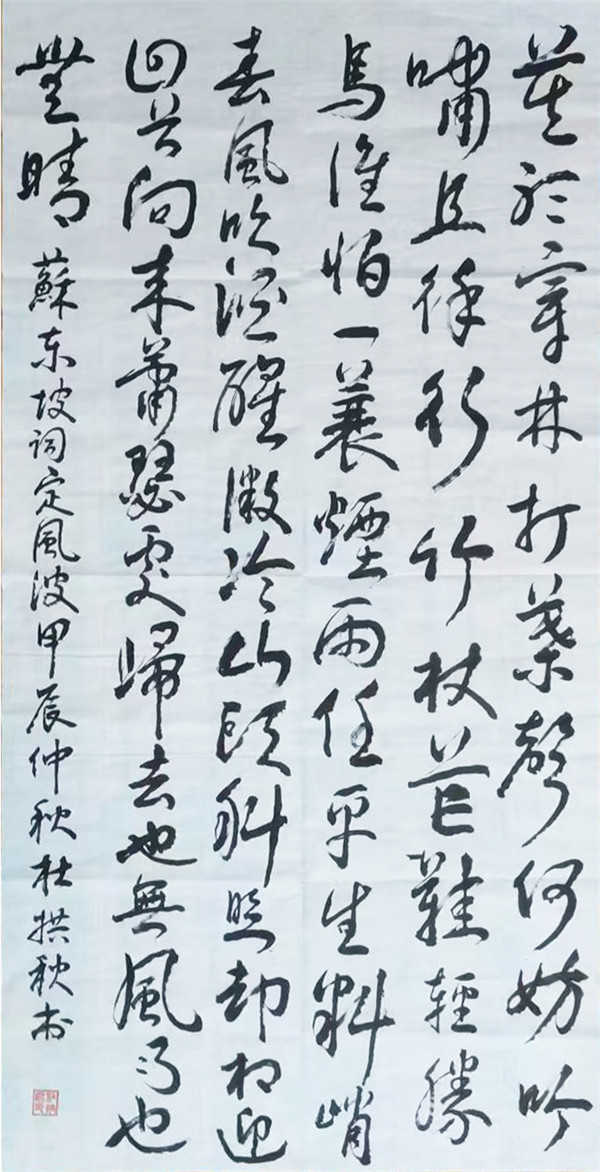 莫聽穿林打葉聲何妨吟
嘯且徐行竹杖芒鞋輕勝
馬誰怕一蓑煙雨任平生料峭
春風吹酒醒微冷山頭斜照却相迎
回首向来蕭瑟處歸去也無風雨也
無晴 蘇东坡词定風波甲辰仲秋杜拱秋书